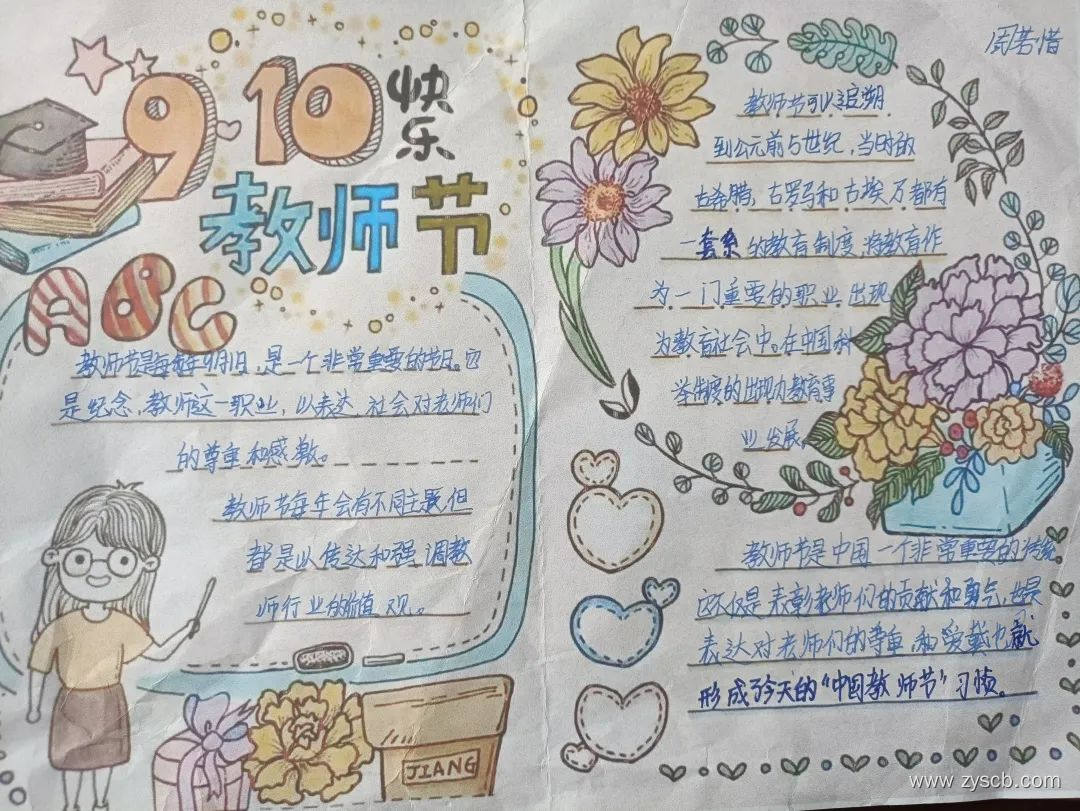 9·10
快乐
教师节
ABC
教师节是每年9月10日,是一个非常重要的节日。它
是纪念,教师这一职业,以表达 社会对老师们
的尊重和感激。
教师节每年会有不同主题,但
都是以传达和强 调教
师行业的价值 观。
JIANG
周若惜
教师节可以追溯
到公元前5世纪,当时的
古希腊,古罗马和古埃及都有
一套系的教育制度,将教育作
为一门重要的职业出现
为教育社会中。在中国科
举制度的出现为教育事
业发展。
教师节是中国一个非常重要的传统
这不仅是表彰老师们的贡献和勇气,也是
表达对老师们的尊重,和爱戴也就
形成了今天的“中国教师节”习惯。
www.zyscb.com